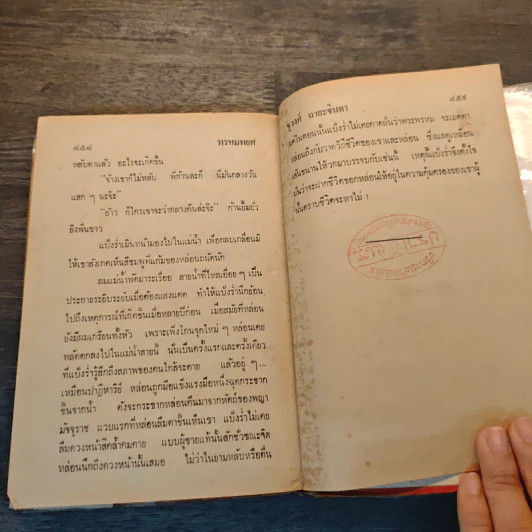 ๔๕๘ พรหมพยศ
หลับตาแล้ว อะไรจะเกิดขึ้น
“จ้างเขาก็ไม่หลับ พี่ก้านละก็ นี่มันกลางวัน
แสก ๆ นะจ๊ะ”
“อ้าว ก็ใครเขาจะว่ากลางคืนล่ะจ๊ะ” ก้านยิ้มยั่ว
ยิงฟันขาว
แป้งร่ำเมินหน้ามองไปในแม่น้ำ เพื่อกลบเกลื่อนมิ
ให้เขาสังเกตเห็นสีชมพูที่แก้มของหล่อนถนัดนัก
ลมแม่น้ำพัดมาระเรื่อย สายน้ำที่ไหลเอื่อย ๆ เป็น
ประกายระยิบระยับเมื่อต้องแสงแดด ทำให้แป้งร่ำนึกย้อน
ไปถึงเหตุการณ์ที่เกิดขึ้นเมื่อหลายปีก่อน เมื่อสมัยที่หล่อน
ยังมีผมเกรียนทั้งหัว เพราะเพิ่งโกนจุกใหม่ ๆ หล่อนเคย
พลัดตกลงไปในแม่น้ำสายนี้ นั่นเป็นครั้งแรกและครั้งเดียว
ที่แป้งร่ำรู้สึกถึงสภาพของคนใกล้จะตาย แล้วอยู่ ๆ...
เหมือนปาฏิหาริย์ หล่อนถูกมือแข็งแรงมือหนึ่งฉุดกระชาก
ขึ้นจากน้ำ ดังจะกระชากหล่อนคืนมาจากหัตถ์ของพญา
มัจจุราช แวบแรกที่หล่อนลืมตาขึ้นเห็นเขา แป้งร่ำไม่เคย
ลืมดวงหน้าสีคล้ำคมคาย แบบผู้ชายแท้นั้นสักชั่วขณะจิต
หล่อนนึกถึงดวงหน้านั้นเสมอ ไม่ว่าในยามหลับหรือตื่น
ชูวงศ์ ฉายะจินดา ๔๕๙
ในตอนนั้นแป้งร่ำไม่เคยคาดฝันว่าพระพรหม จะเมตตา
หล่อนถึงกับวาดวิถีชีวิตของเขาและหล่อน ซึ่งแลดูเหมือน
เส้นขนานให้วกมาบรรจบกันเช่นนี้ เหตุนั้นแป้งร่ำจึงตั้งใจ
มั่นว่าจะฝากชีวิตของหล่อนให้อยู่ในความคุ้มครองของเขาผู้
นั้นตราบชีวิตจะหาไม่ !